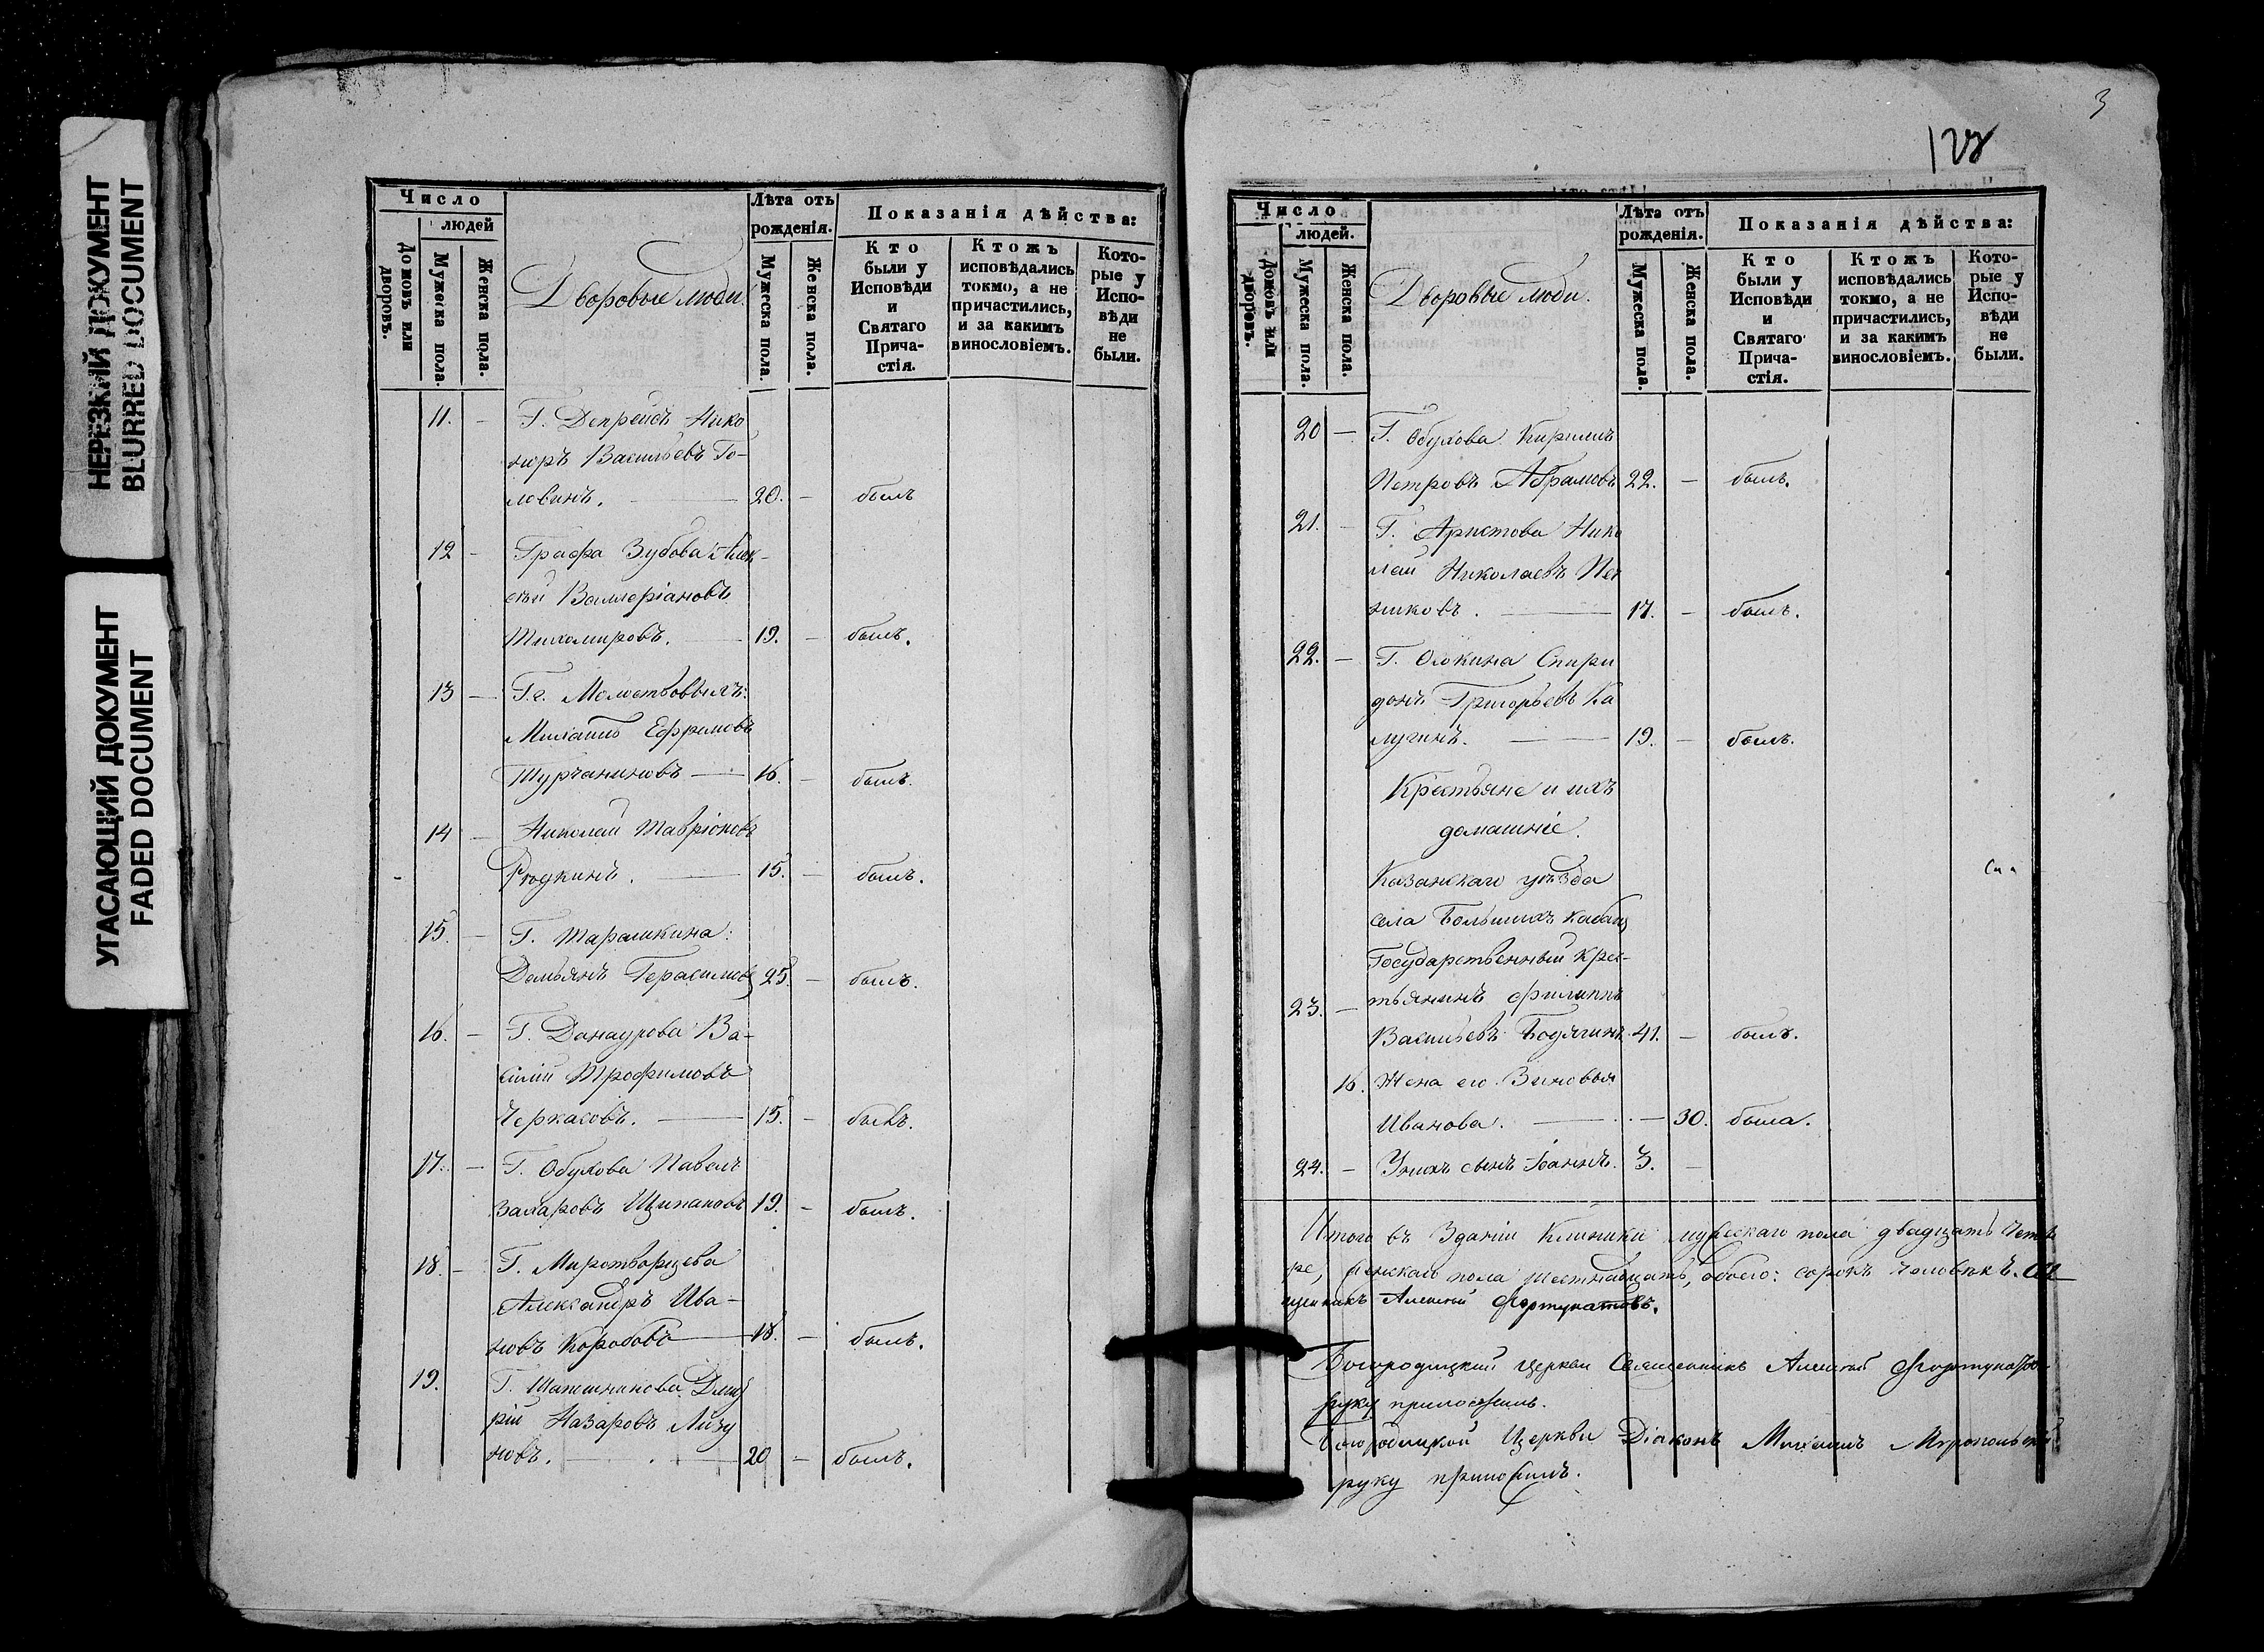 НЕРЕЗКИЙ ДОКУМЕНТ
BLURRED DOCUMENT
УГАСАЮЩИЙ ДОКУМЕНТ
FADED DOCUMENT
Число
людей
Домовъ или дворовъ.
Мужеска пола.
Женска пола.
Дворовые люди.
Лѣта отъ рожденія.
Мужеска пола.
Женска пола.
Показанія дѣйства:
Кто были у Исповѣди и Святаго Прича-стія.
Ктожъ исповѣдались токмо, а не причастились, и за какимъ винословіемъ.
Кото-рые у Испо-вѣди не были.
11. - Г. Депрейсъ Нико
норъ Васильевъ Го-
ловинъ. 20. - былъ
12 - Графа Зубова Алек-
сѣй Валлеріановъ
Тихомировъ. 19. - былъ.
13 - Г.г.
Ефремовъ
Турчаниновъ 16. - былъ.
14 - Николай
15. - былъ.
15. - Г. Тарашкина:
Демьянъ Герасимовъ 25. - былъ.
16. - Г. Данаурова Ва-
силій Трофимовъ
Черкасовъ. 15. - былъ.
17. - Г. Обухова Павелъ
Захаровъ Щипановъ 19. - былъ.
18. - Г. Миротворцева
Александръ Ива-
новъ Коробовъ 18. - былъ.
19. Г. Дмит
рій Назаровъ Лизу
новъ. 20 - былъ.
3
128
Число
людей.
Домовъ или дворовъ.
Мужеска пола.
Женска пола.
Дворовые люди.
Лѣта отъ рожденія.
Мужеска пола.
Женска пола.
Показанія дѣйства:
Кто были у Исповѣди и Святаго Прича-стія.
Ктожъ исповѣдались токмо, а не причастились, и за какимъ винословіемъ.
Кото-рые у Испо-вѣди не были.
20 - Г. Обухова Кирилъ
Петровъ Абрамовъ 22. - былъ.
21. - Г. Аристова Нико
лай Николаевъ
17. - былъ.
22. - Г. Спири
донъ Григорьевъ Ка
лугинъ. 19. - былъ.
Крестьяне и ихъ
домашніе.
Казанскаго уѣзда
села Большихъ Кабанъ
Государственный крес-
23. - тьянинъ Филиппъ
Васильевъ 41. - былъ.
16. Жена его Зиновья
Иванова. - 30. была.
24. - У нихъ сынъ Іоаннъ. 3. -
Итого въ Зданіи Клиники мужескаго пола двадцать четы
ре, женскаго пола шестнадцать, обоего: сорокъ человѣкъ. Свя
щенникъ Алексѣй Фортунатовъ.
Богородицкой церкви Священникъ Алексѣй Фортунатовъ
руку приложилъ.
Богородицкой Церкви Діаконъ Михаилъ
руку приложилъ.